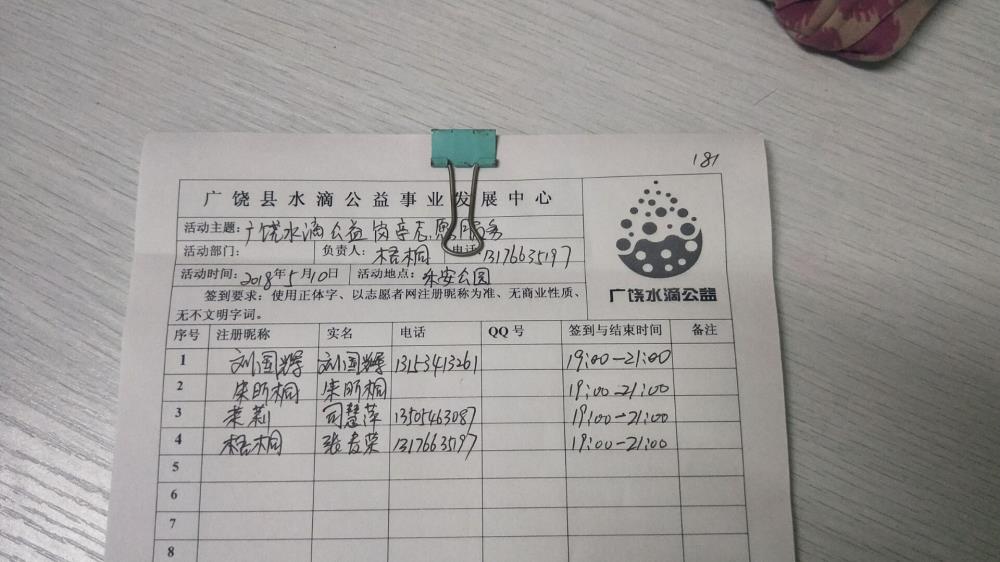 181
广饶县水滴公益事业发展中心
活动主题：广饶水滴公益岗亭志愿服务
活动部门： 负责人：梧桐 电话：13176635197
活动时间：2018年5月10日 活动地点：乐安公园
签到要求：使用正体字、以志愿者网注册昵称为准、无商业性质、
无不文明字词。
广饶水滴公益
序号 注册昵称 实名 电话 QQ号 签到与结束时间 备注
1 刘国辉 刘国辉 13153413261 19:00-21:00
2 宋昕桐 宋昕桐 19:00-21:00
3 茉莉 司慧萍 13505463087 19:00-21:00
4 梧桐 张春荣 13176635197 19:00-21:00
5
6
7
8